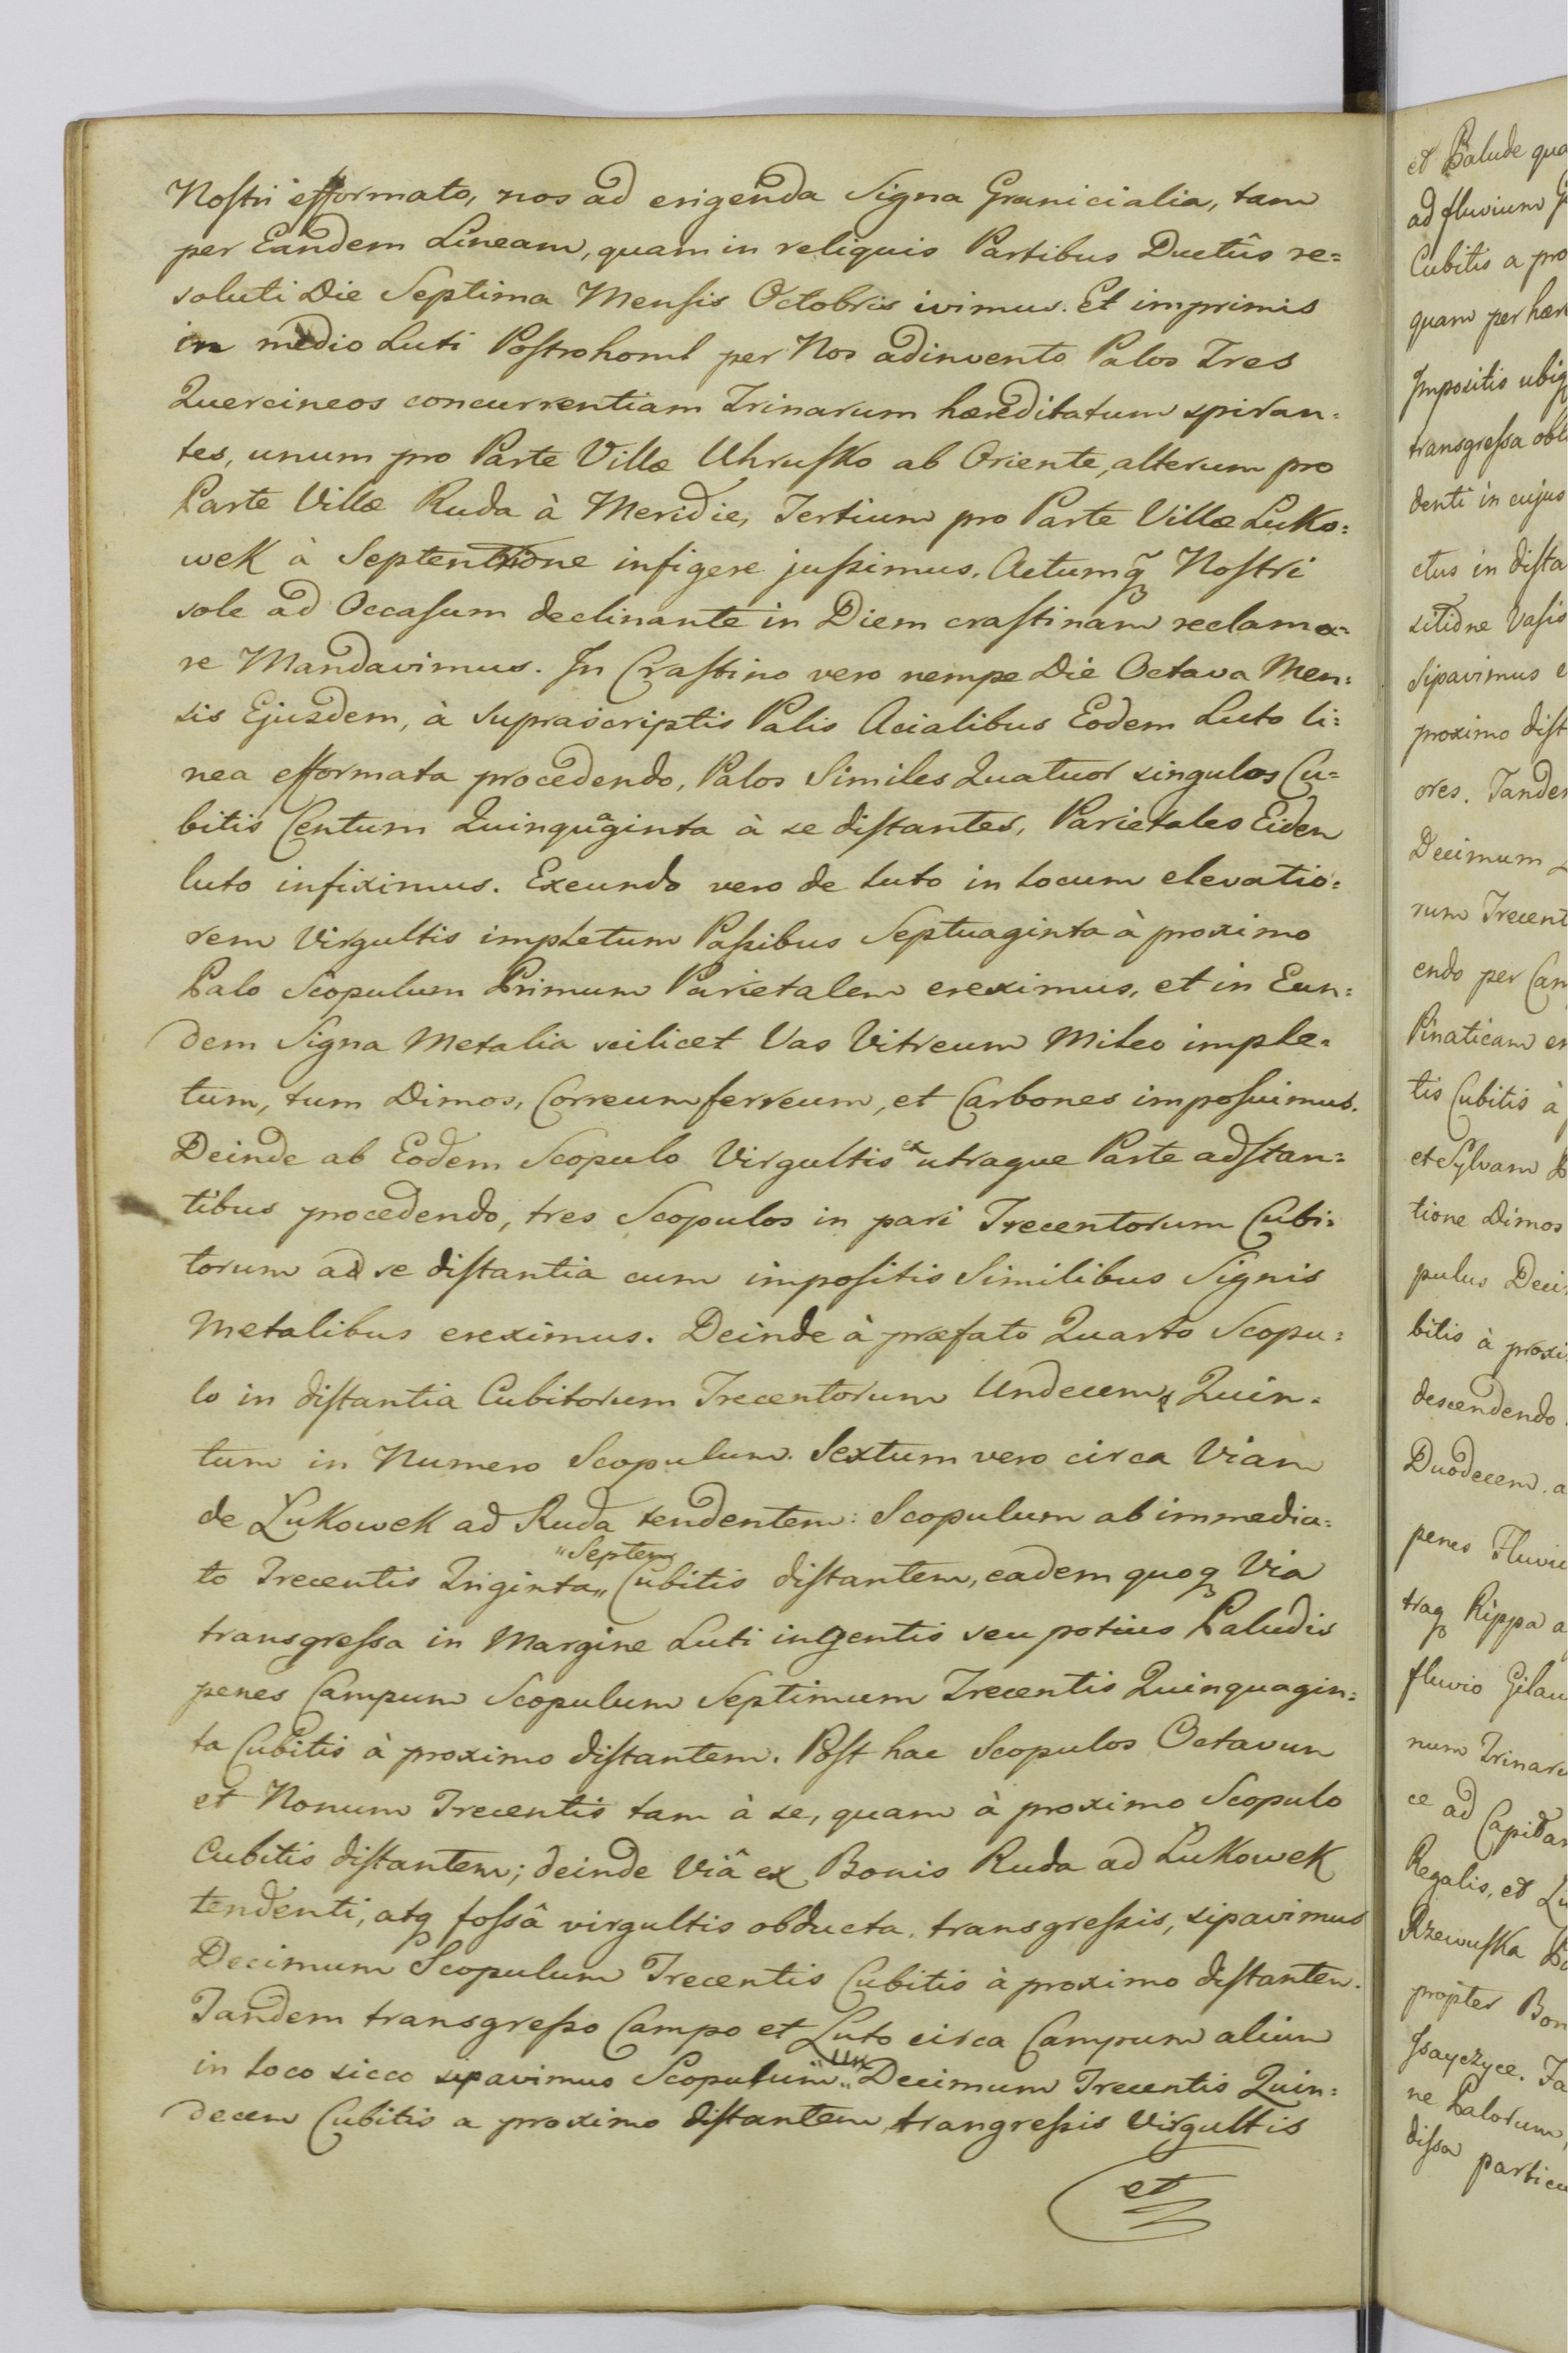 Nostri efformato, nos ad erigenda Signa Granicialia, tam
per Eandem Lineam, quam in reliquis Partibus Ductûs re=
soluti Die Septima Mensis Octobris ivimus. Et imprimis
in medio Luti Postrohoml per Nos adinvento Palos Tres
Quercineos concurrentiam Trinarum hæreditatum spiran=
tes, unum pro Parte Villæ Uhrusko ab Oriente, alterum pro
Parte Villæ Ruda à Meridie, Tertium pro Parte Villæ Luko=
wek à Septentrione infigere jussimus. Actumq Nostri
sole ad Occasum declinante in Diem crastinam reclama=
re Mandavimus. In Crastino vero nempe Die Octava Men=
sis Ejusdem, à suprascriptis Palis Acialibus Eodem Luto li=
nea efformata procedendo, Palos Similes Quatuor singulos Cu=
bitis Centum Quinquaginta à se distantes, Parietales Eidem
luto infiximus. Exeundo vero de luto in locum elevatio=
rem Virgultis impletum Passibus Septuaginta à proximo
Palo Scopulum Primum Parietalem ereximus, et in Eun=
dem Signa Metalia scilicet Vas Vitreum Mileo imple=
tum, tum Dimos, Correum ferreum, et Carbones imposuimus.
Deinde ab Eodem Scopulo Virgultis ex utraque Parte adstan=
tibus procedendo, tres Scopulos in pari Trecentorum Cubi=
torum ad se distantia cum impositis Similibus Signis
Metalibus ereximus. Deinde à præfato Quarto Scopu=
lo in distantia Cubitorum Trecentorum Undecem, Quin=
tum in Numero Scopulum. Sextum vero circa Viam
de Lukowek ad Ruda tendentem: Scopulum ab immedia=
to Trecentis Triginta „Septem„ Cubitis distantem, eadem quoq Via
transgressa in Margine Luti ingentis seu potius Paludis
penes Campum Scopulum Septimum Trecentis Quinquagin=
ta Cubitis à proximo distantem. Post hac Scopulos Octavum
et Nonum Trecentis tam à se, quam à proximo Scopulo
Cubitis distantem; deinde Viâ ex Bonis Ruda ad Lukowek
tendenti, atq fossâ virgultis obducta, transgressis, sipavimus
Decimum Scopulum Trecentis Cubitis à proximo distantem.
Tandem transgresso Campo et Luto circa Campum alium
in loco sicco sipavimus Scopulum „Un„ Decimum Trecentis Quin=
decem Cubitis a proximo distantem, trangressis Virgultis
et
et Palude qua
ad fluvium
Cubitis a pro
quam per hær
Impositis ubiq
transgressa obli
denti in cujus
ctus in dista
sitione Vasis
sipavimus e
proximo dist
ores. Tandem
Decimum
rum Trecent
endo per Cam
Pinaticam er
tis Cubitis à
et Sylvam
tione Dimos
pulus Deci
bitis à proxi
descendendo
Duodecem a
penes Fluvi
traq Rippa a
fluvio Gilau
num Trinaru
ce ad Capita
Regalis, et Lu
Rzewuska
propter Bon
Isayczyce. Ta
ne Palorum,
dissa particu